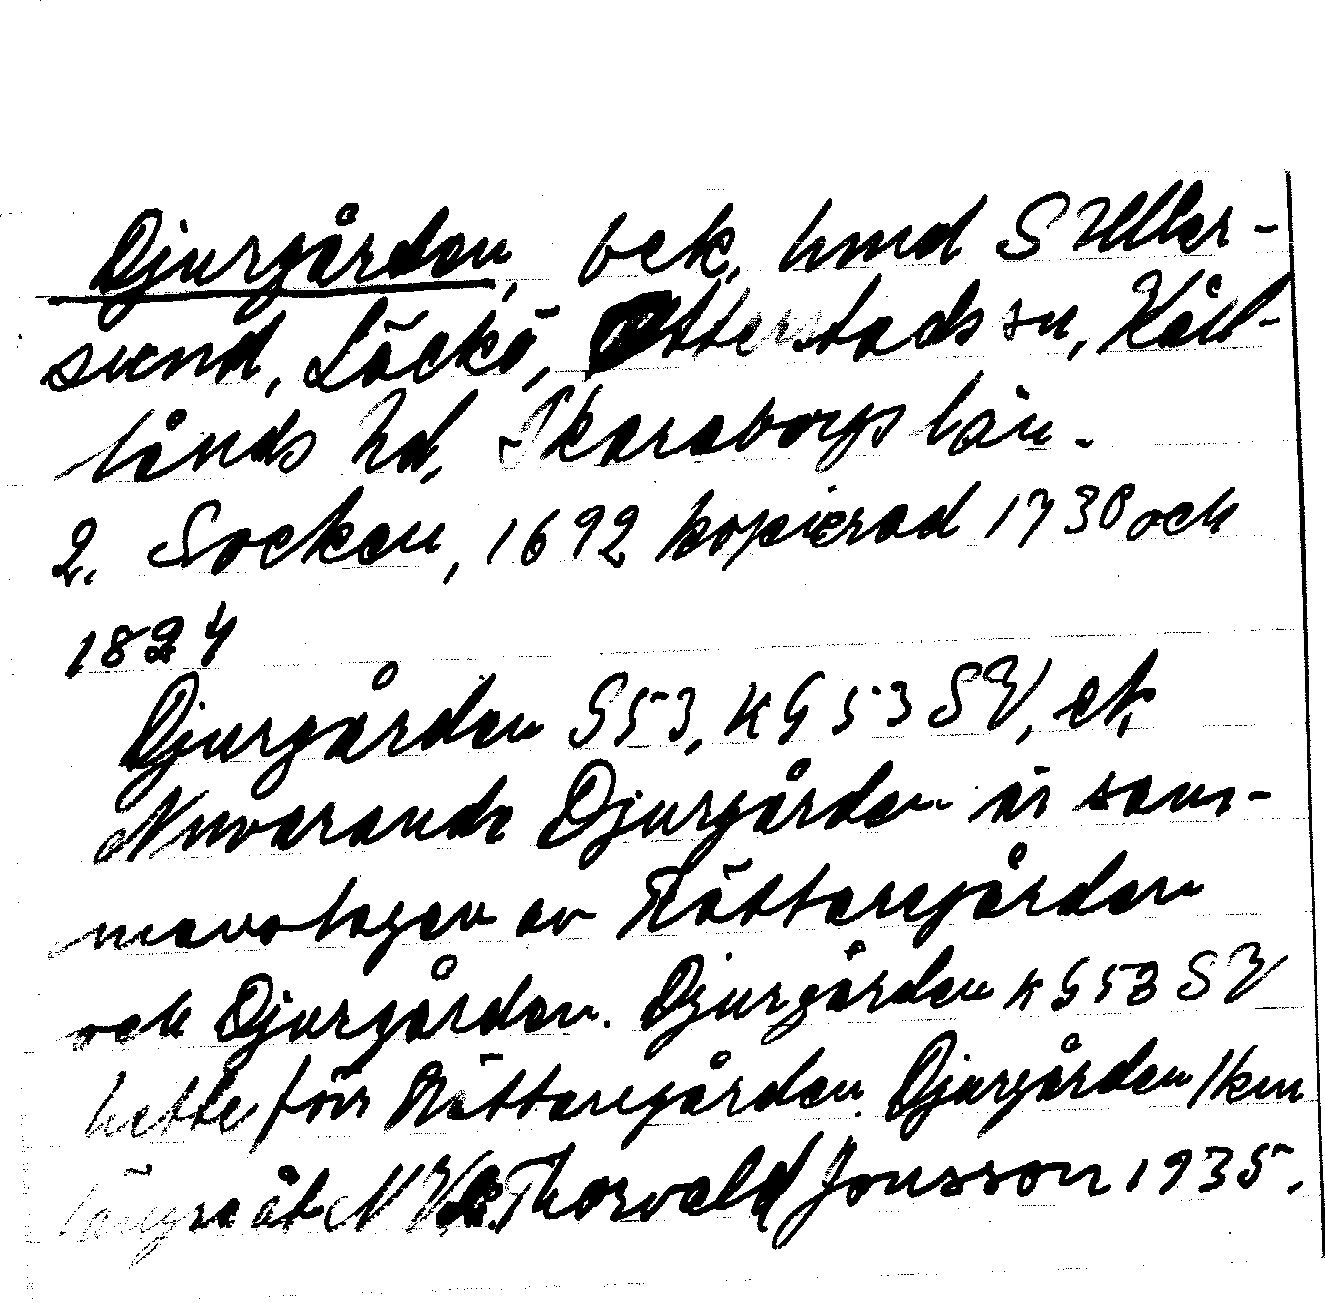 Djurgården, bek. hmd S Uller-
sund, Läckö, Otterstads sn, Kål-
lands hd, Skaraborgs län.
2. Socken, 1692 kopierad 1730 och
1824
Djurgården G53, KG53SV, ek
Nuvarande Djurgården är sam-
mantagen av Rättaregården
och Djurgården. Djurgården KG53SV
hette förr Rättaregården. Djurgården 1 km
längre åt NV. Thorvald Jonsson 1935.